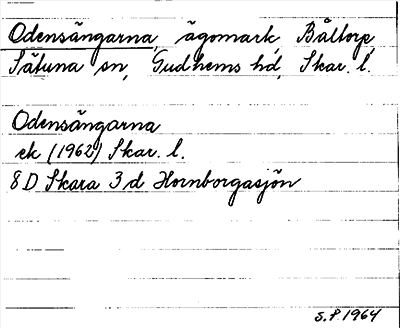 Odensängarna, ägomark, Båltorp,
Sätuna sn, Gudhems hd, Skar. l.
Odensängarna
ek (1962) Skar. l.
8 D Skara 3 d Hornborgasjön
S.P 1964